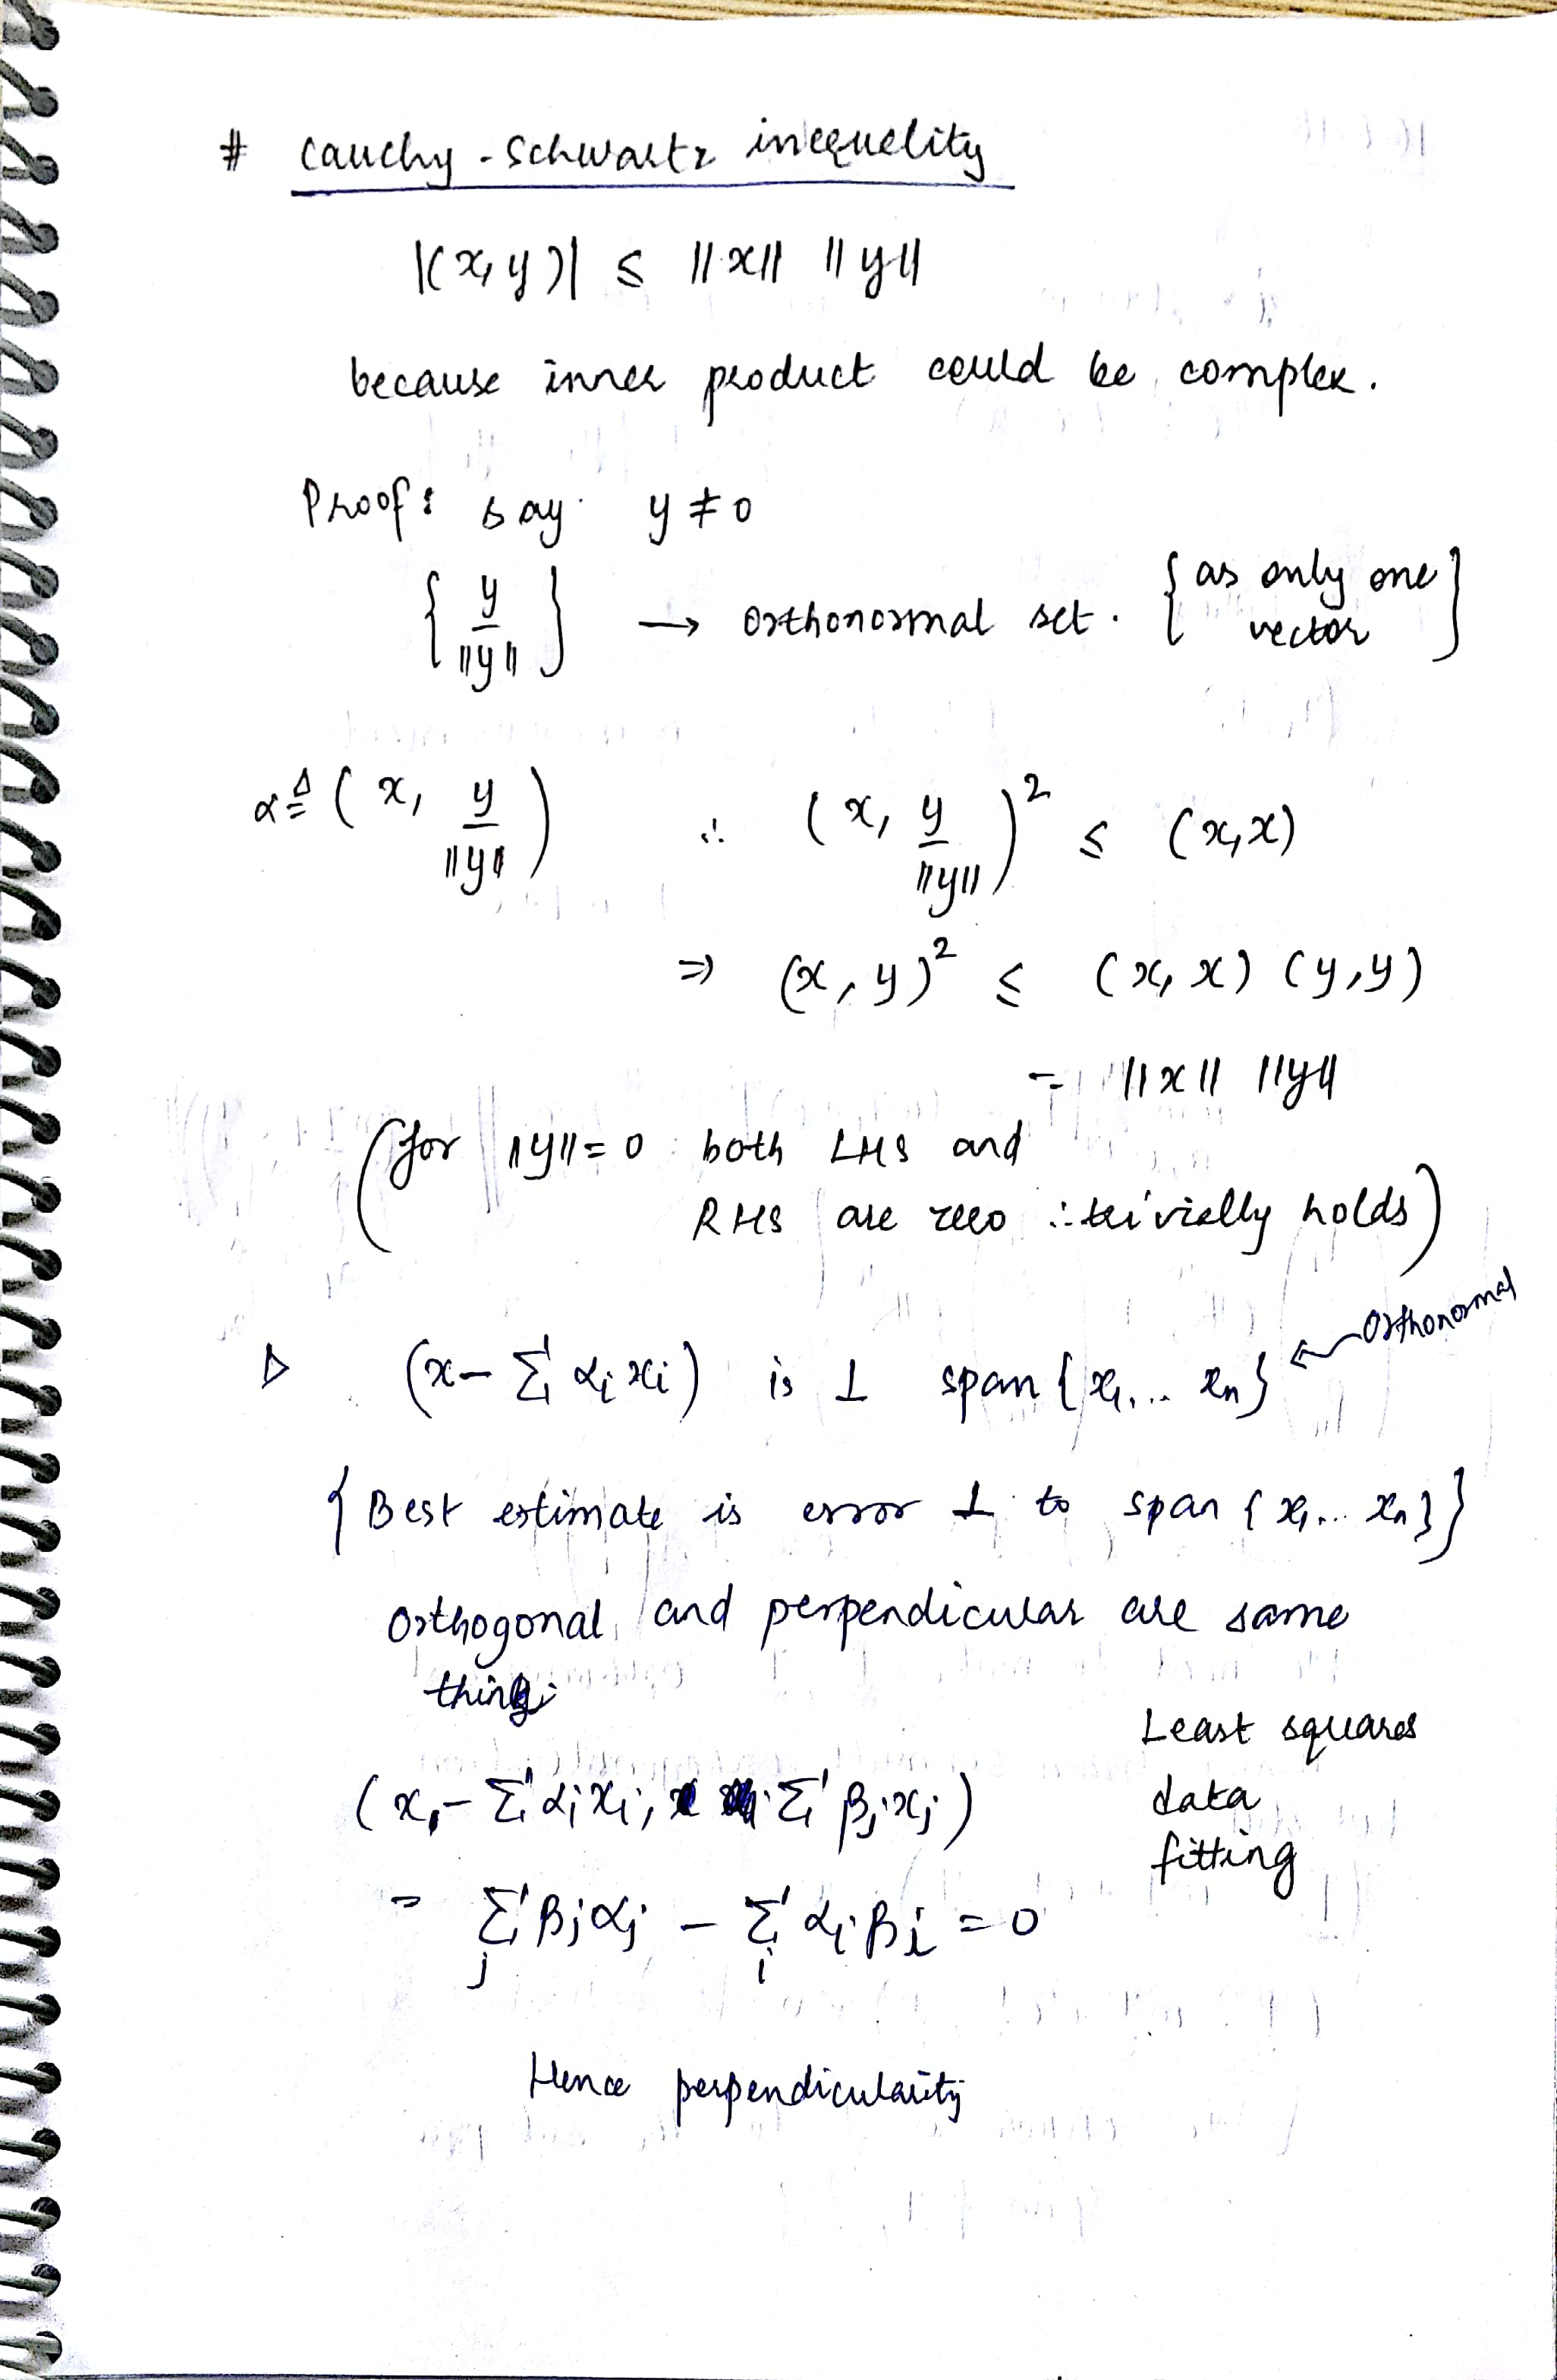 # Cauchy-Schwartz inequality
|(x, y)| ≤ ||x|| ||y||
because inner product could be complex.
Proof: say y ≠ 0
{ y / ||y|| } → orthonormal set. { as only one vector }
α ≜ ( x, y / ||y|| ) ∴ ( x, y / ||y|| )² ≤ (x, x)
⇒ (x, y)² ≤ (x, x) (y, y)
= ||x|| ||y||
(for ||y|| = 0 both LHS and
RHS are zero ∴ trivially holds)
▷ (x - Σ αᵢ xᵢ) is ⊥ span {x₁, ... xₙ} ← Orthonormal
{ Best estimate is error ⊥ to span { x₁ ... xₙ } }
Orthogonal and perpendicular are same
thing
(x - Σ αᵢ xᵢ, Σ βⱼ xⱼ)
Least squares
data
fitting
= Σⱼ βⱼ αⱼ - Σᵢ αᵢ βᵢ = 0
Hence perpendicularity